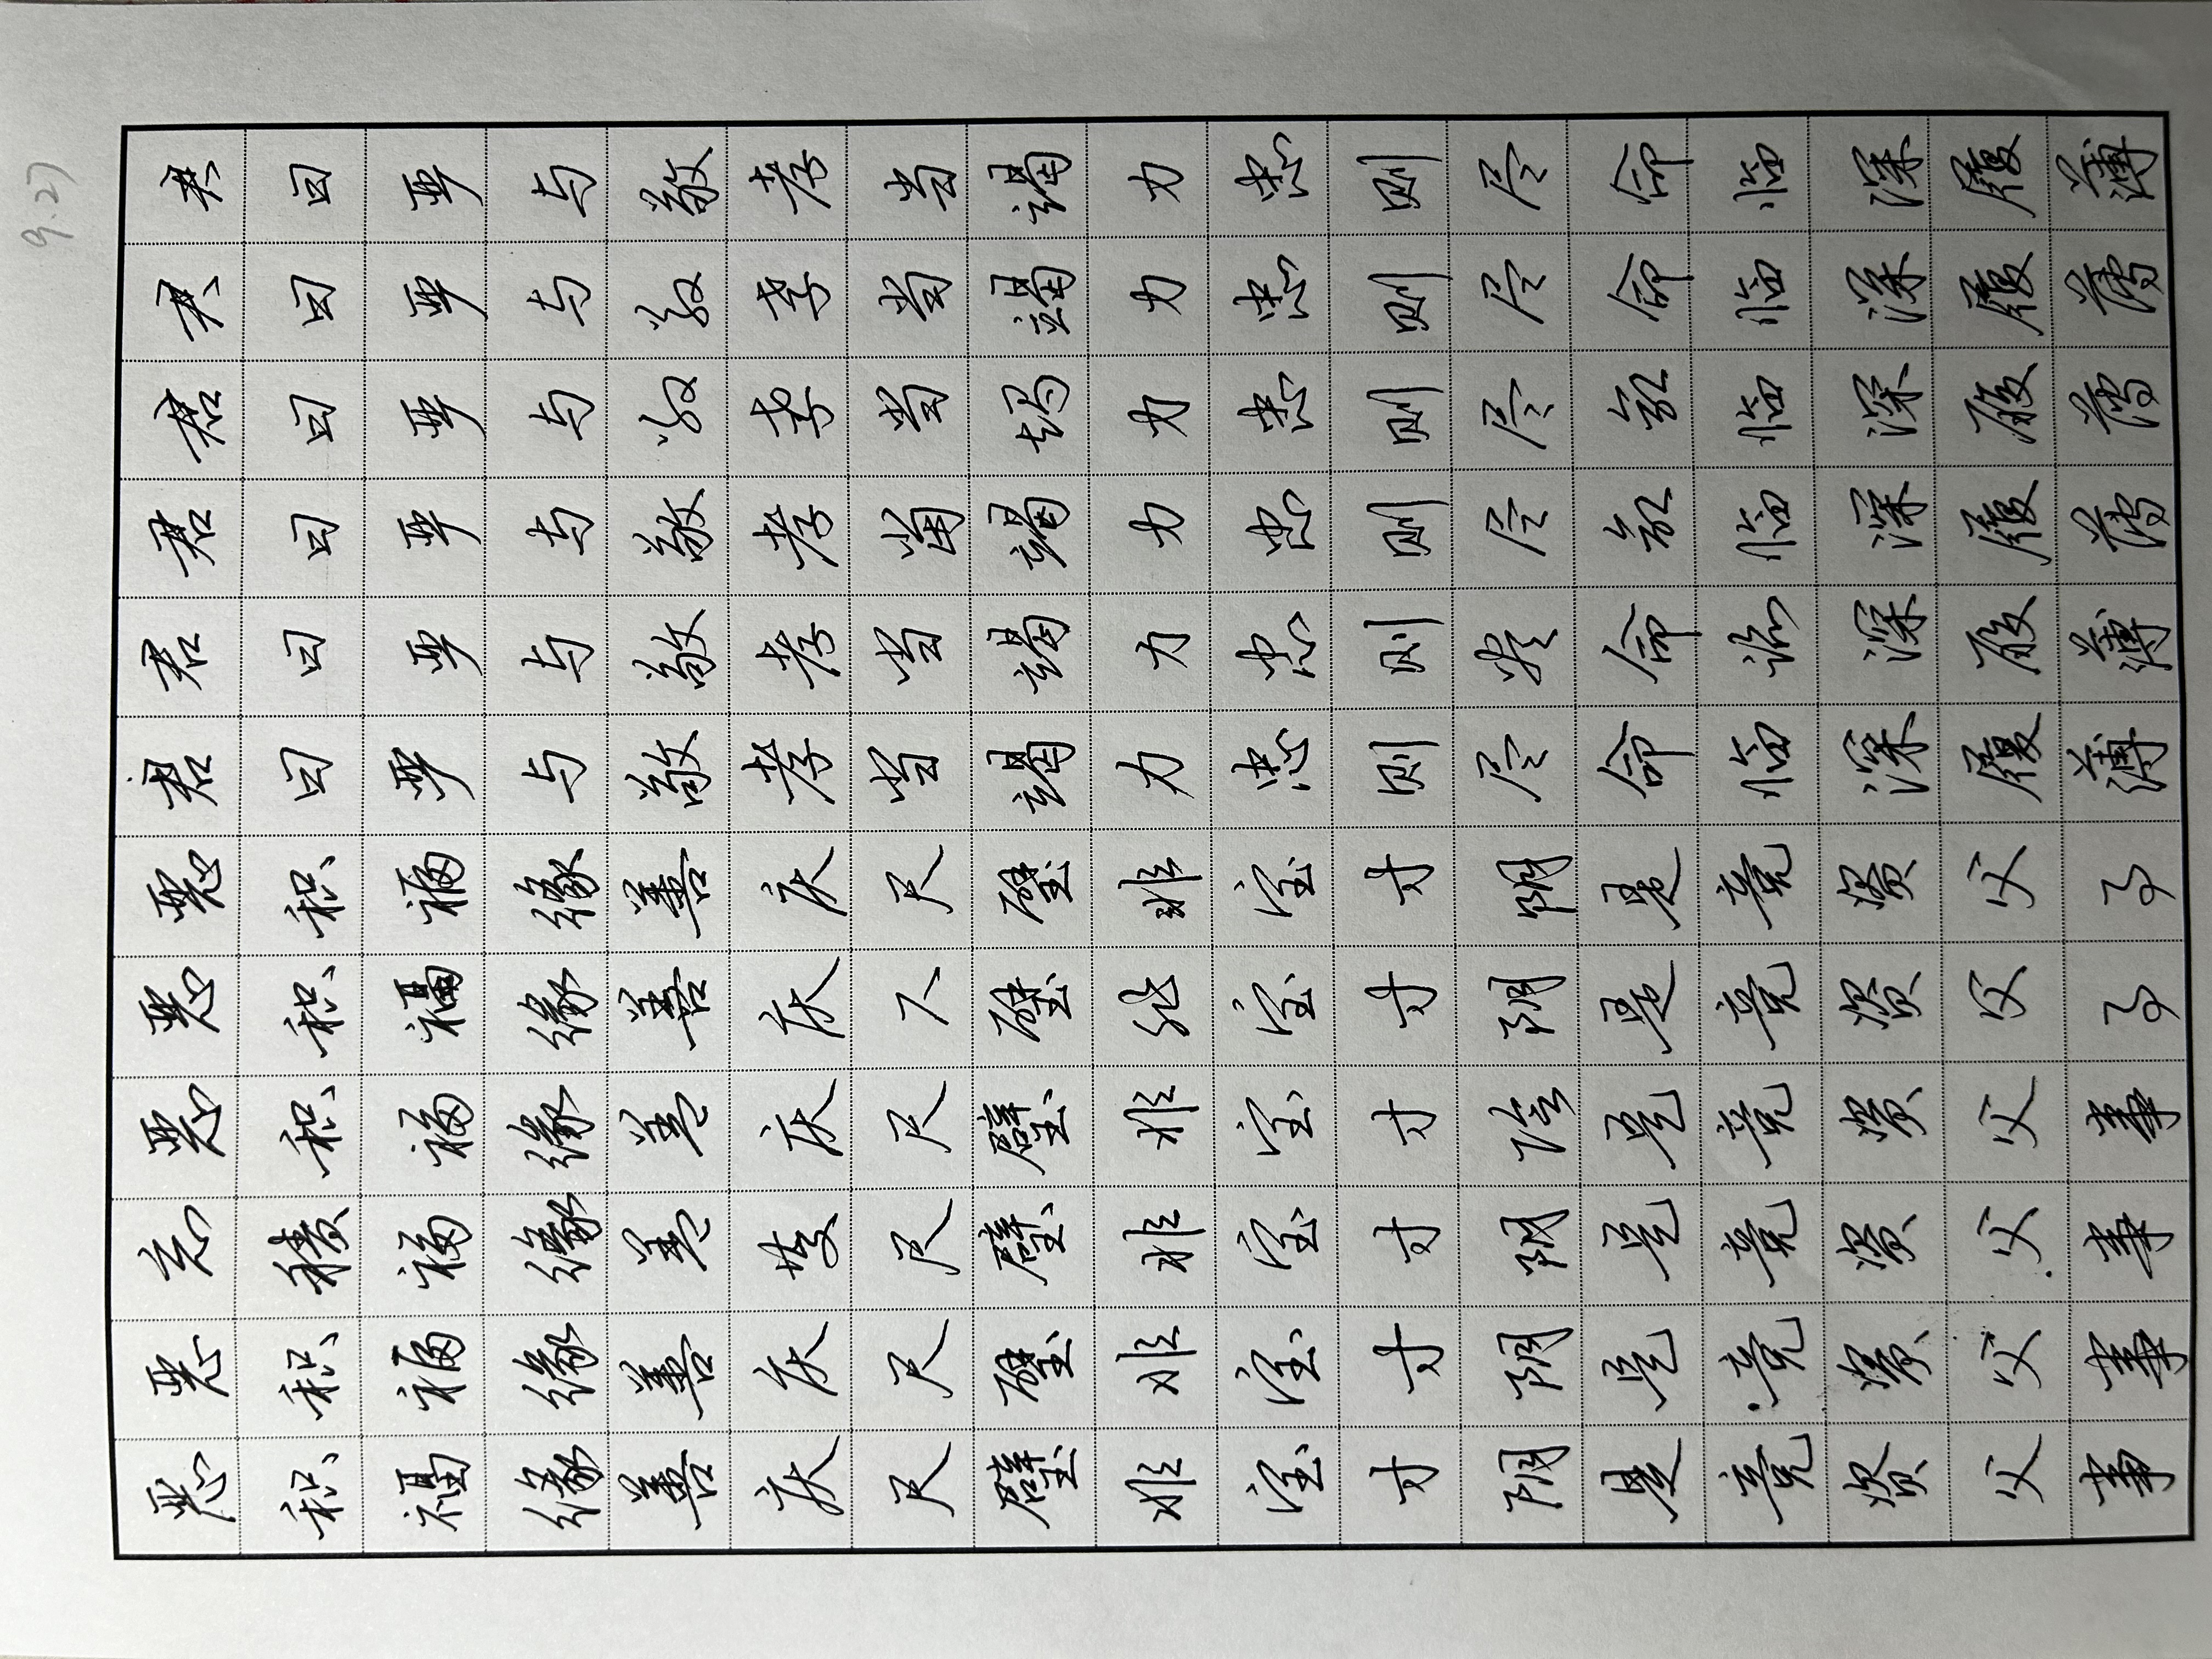 9.27
恶恶恶恶恶恶君君君君君君
积积積积积积曰曰曰曰曰曰
福福福福福福严严严严严严
缘缘缘缘缘缘与与与与与与
善善善善善善敬敬敬敬敬敬
庆庆慶庆庆庆孝孝孝孝孝孝
尺尺尺尺尺尺当当當当当当
璧璧璧璧璧璧竭竭竭竭竭竭
非非非非非非力力力力力力
宝宝宝宝宝宝忠忠忠忠忠忠
寸寸寸寸寸寸则则则则则则
阴阴阴陰阴阴尽盡尽尽尽尽
是是是是是是命命命命命命
竞竞竞竞竞竞临临临临临临
资资资资资资深深深深深深
父父父父父父履履履履履履
事事事事事事薄薄薄薄薄薄